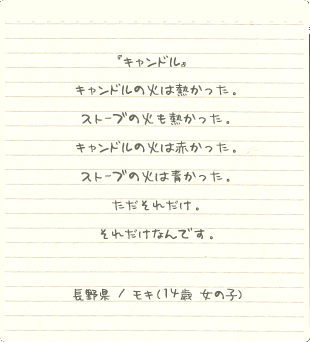 『キャンドル』
キャンドルの火は熱かった。
ストーブの火も熱かった。
キャンドルの火は赤かった。
ストーブの火は青かった。
ただそれだけ。
それだけなんです。
長野県 / モキ(14歳 女の子)